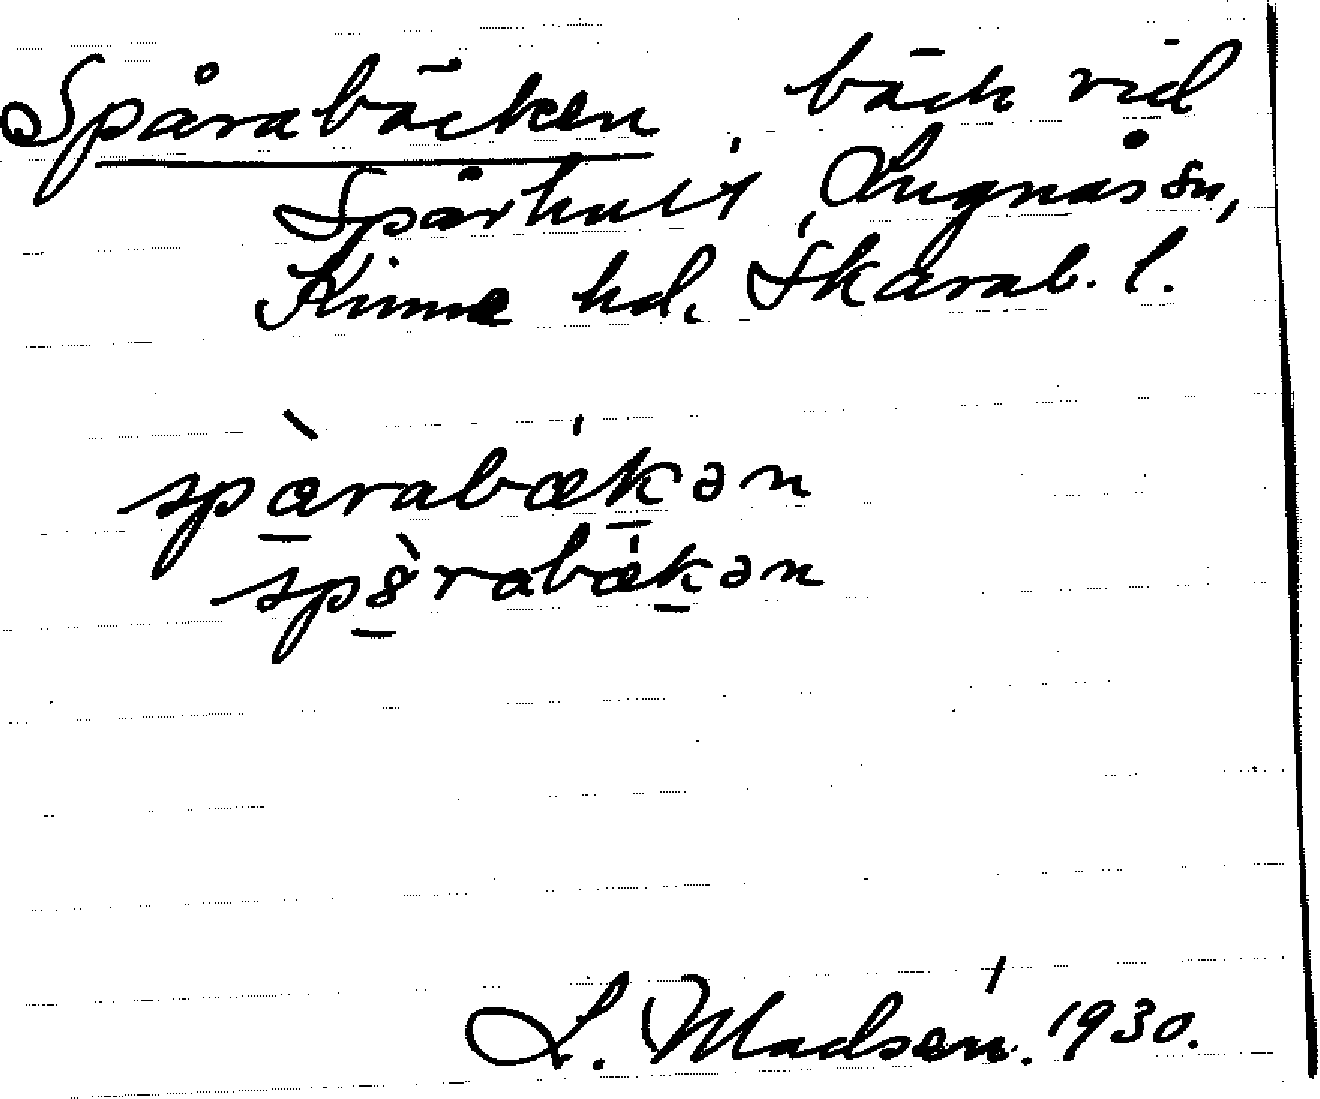 Spårabäcken, bäck vid
Spårhult, Lugnås sn,
Kinne hd. Skarab. l.
spæ̀rabækən
spèrabækən
L. Madsén. 1930.